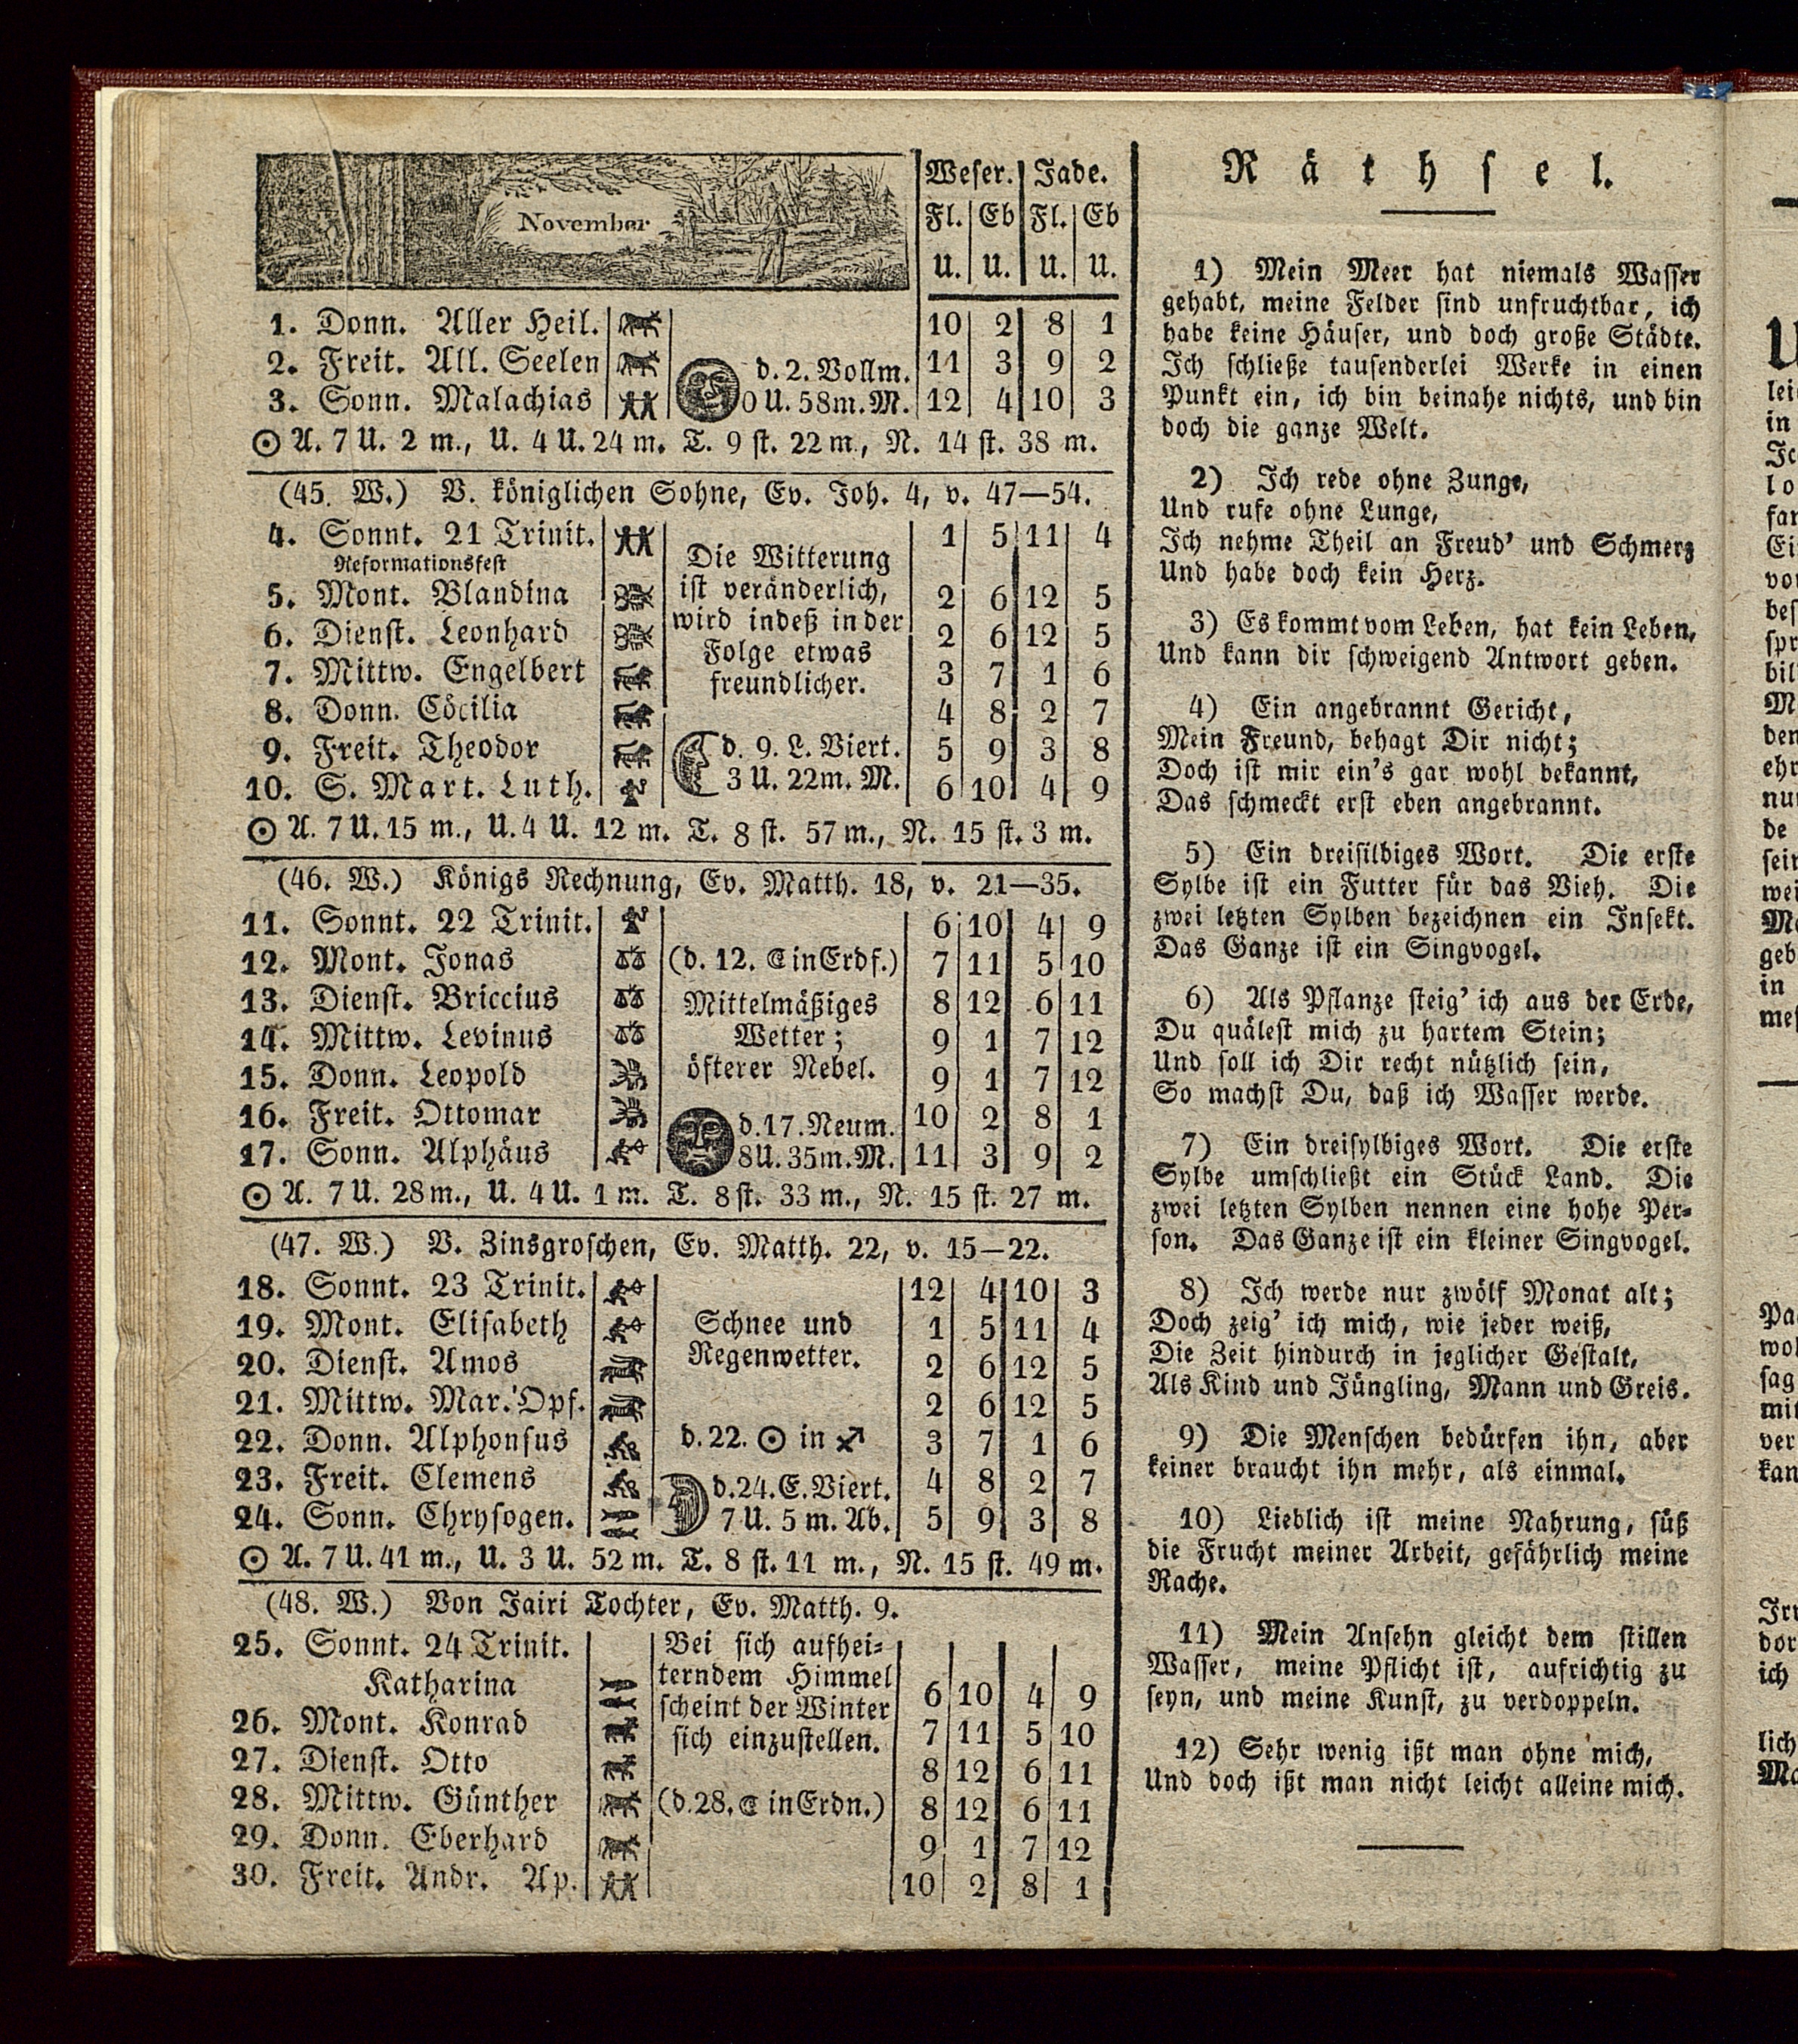 November
Weser. Jade.
Fl. Eb Fl. Eb
U. U. U. U.
1. Donn. Aller Heil. 10 2 8 1
2. Freit. All. Seelen d. 2. Vollm. 11 3 9 2
3. Sonn. Malachias 0 U. 58m. M. 12 4 10 3
☉ A. 7 U. 2 m., U. 4 U. 24 m. T. 9 st. 22 m., N. 14 st. 38 m.
(45. W.) V. königlichen Sohne, Ev. Joh. 4, v. 47—54.
4. Sonnt. 21 Trinit. 1 5 11 4
Reformationsfest
Die Witterung
ist veränderlich,
wird indeß in der
Folge etwas
freundlicher.
5. Mont. Blandina 2 6 12 5
6. Dienst. Leonhard 2 6 12 5
7. Mittw. Engelbert 3 7 1 6
8. Donn. Cöcilia 4 8 2 7
9. Freit. Theodor d. 9. L. Viert. 5 9 3 8
10. S. Mart. Luth. 3 U. 22m. M. 6 10 4 9
☉ A. 7 U. 15 m., U. 4 U. 12 m. T. 8 st. 57 m., N. 15 st. 3 m.
(46. W.) Königs Rechnung, Ev. Matth. 18, v. 21—35.
11. Sonnt. 22 Trinit. 6 10 4 9
12. Mont. Jonas (d. 12. ☾ in Erdf.) 7 11 5 10
13. Dienst. Briccius Mittelmäßiges 8 12 6 11
14. Mittw. Levinus Wetter; 9 1 7 12
15. Donn. Leopold öfterer Nebel. 9 1 7 12
16. Freit. Ottomar d. 17. Neum. 10 2 8 1
17. Sonn. Alphäus 8U. 35m. M. 11 3 9 2
☉ A. 7 U. 28 m., U. 4 U. 1 m. T. 8 st. 33 m., N. 15 st. 27 m.
(47. W.) V. Zinsgroschen, Ev. Matth. 22, v. 15—22.
18. Sonnt. 23 Trinit. 12 4 10 3
19. Mont. Elisabeth Schnee und 1 5 11 4
20. Dienst. Amos Regenwetter. 2 6 12 5
21. Mittw. Mar. Opf. 2 6 12 5
22. Donn. Alphonsus d. 22. ☉ in ♐ 3 7 1 6
23. Freit. Clemens d. 24. E. Viert. 4 8 2 7
24. Sonn. Chrysogen. 7 U. 5 m. Ab. 5 9 3 8
☉ A. 7 U. 41 m., U. 3 U. 52 m. T. 8 st. 11 m., N. 15 st. 49 m.
(48. W.) Von Jairi Tochter, Ev. Matth. 9.
25. Sonnt. 24 Trinit. Bei sich aufhei-
terndem Himmel
Katharina scheint der Winter 6 10 4 9
26. Mont. Konrad sich einzustellen. 7 11 5 10
27. Dienst. Otto 8 12 6 11
28. Mittw. Günther (d. 28. ☾ in Erdn.) 8 12 6 11
29. Donn. Eberhard 9 1 7 12
30. Freit. Andr. Ap. 10 2 8 1
Räthsel.
1) Mein Meer hat niemals Wasser
gehabt, meine Felder sind unfruchtbar, ich
habe keine Häuser, und doch große Städte.
Ich schließe tausenderlei Werke in einen
Punkt ein, ich bin beinahe nichts, und bin
doch die ganze Welt.
2) Ich rede ohne Zunge,
Und rufe ohne Lunge,
Ich nehme Theil an Freud' und Schmerz
Und habe doch kein Herz.
3) Es kommt vom Leben, hat kein Leben,
Und kann dir schweigend Antwort geben.
4) Ein angebrannt Gericht,
Mein Freund, behagt Dir nicht;
Doch ist mir ein's gar wohl bekannt,
Das schmeckt erst eben angebrannt.
5) Ein dreisilbiges Wort. Die erste
Sylbe ist ein Futter für das Vieh. Die
zwei letzten Sylben bezeichnen ein Insekt.
Das Ganze ist ein Singvogel.
6) Als Pflanze steig' ich aus der Erde,
Du quälest mich zu hartem Stein;
Und soll ich Dir recht nützlich sein,
So machst Du, daß ich Wasser werde.
7) Ein dreisylbiges Wort. Die erste
Sylbe umschließt ein Stück Land. Die
zwei letzten Sylben nennen eine hohe Per-
son. Das Ganze ist ein kleiner Singvogel.
8) Ich werde nur zwölf Monat alt;
Doch zeig' ich mich, wie jeder weiß,
Die Zeit hindurch in jeglicher Gestalt,
Als Kind und Jüngling, Mann und Greis.
9) Die Menschen bedürfen ihn, aber
keiner braucht ihn mehr, als einmal.
10) Lieblich ist meine Nahrung, süß
die Frucht meiner Arbeit, gefährlich meine
Rache.
11) Mein Ansehn gleicht dem stillen
Wasser, meine Pflicht ist, aufrichtig zu
seyn, und meine Kunst, zu verdoppeln.
12) Sehr wenig ißt man ohne mich,
Und doch ißt man nicht leicht alleine mich.